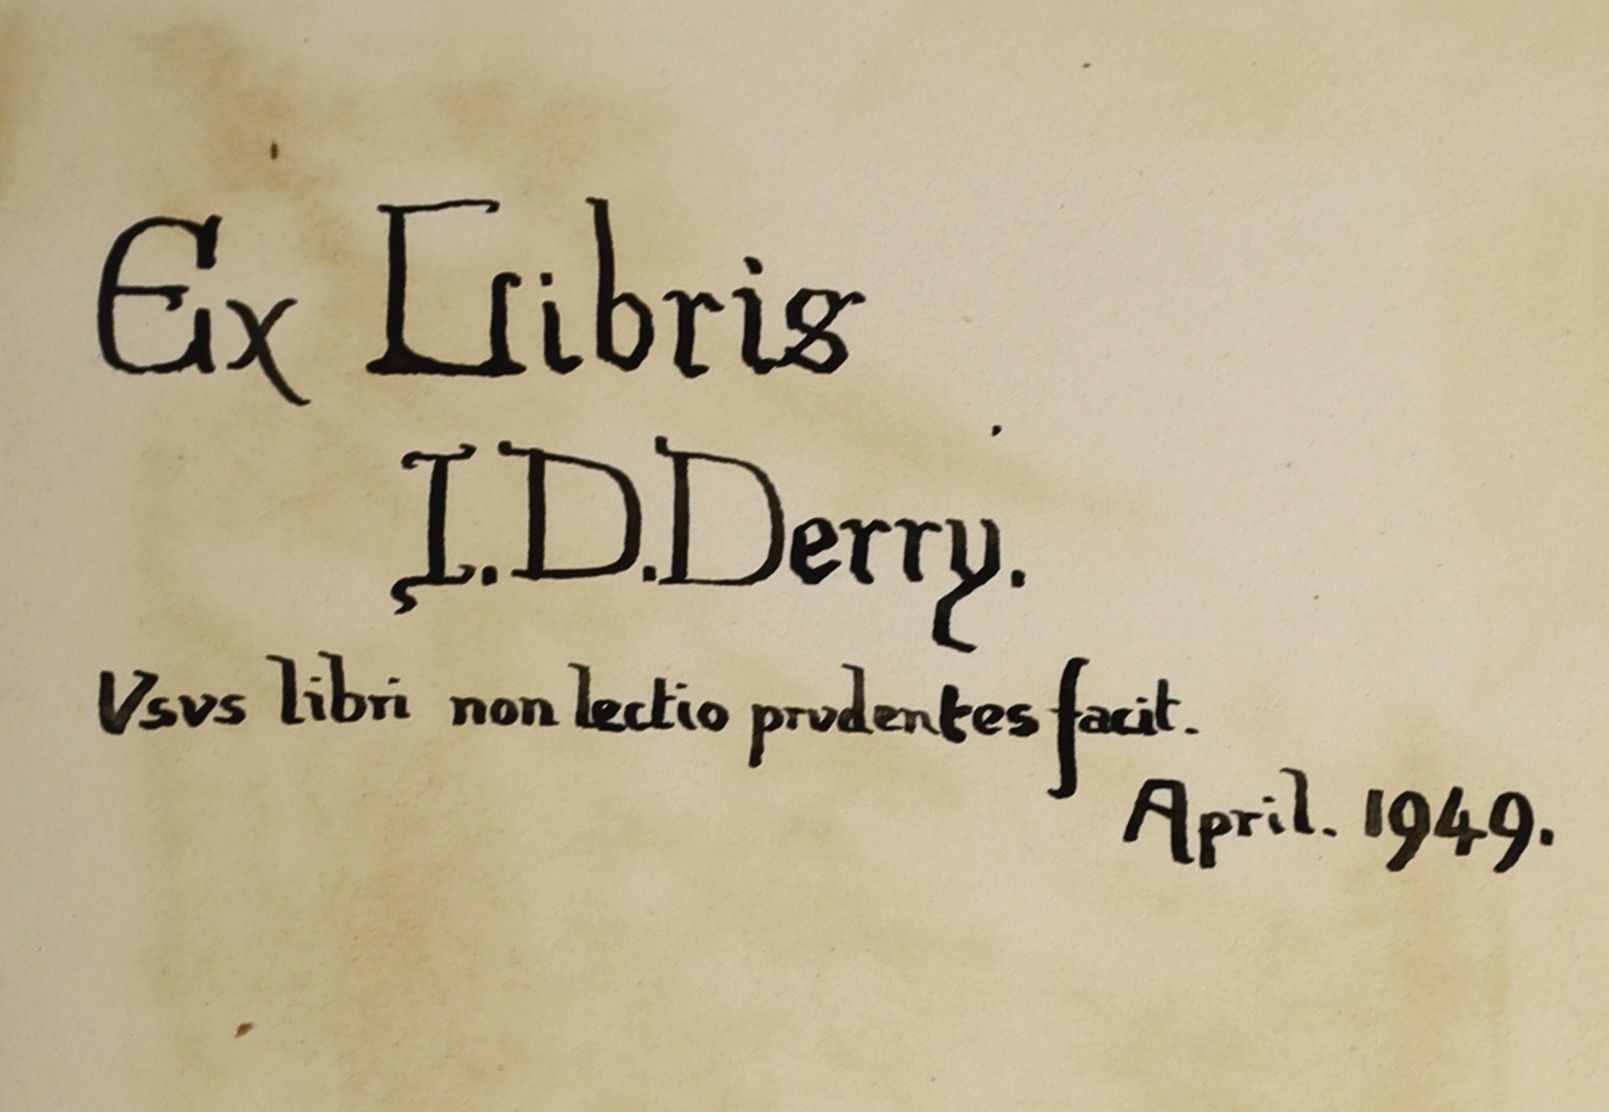 Ex Libris
I.D.Derry.
Vsvs libri non lectio prvdentes facit.
April. 1949.